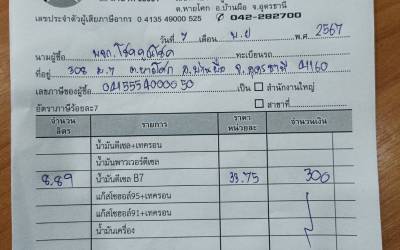 ต.หายโศก อ.บ้านผือ จ.อุดรธานี
เลขประจำตัวผู้เสียภาษีอากร 0 4135 49000 525 042-282700
วันที่ 7 เดือน พ.ย พ.ศ 2567
นามผู้ซื้อ หจก.โชคคูณโชค ทะเบียนรถ
ที่อยู่ 308 ม.7 ต.หายโศก อ.บ้านผือ จ.อุดรธานี 41160
เลขภาษีของผู้ซื้อ เป็น สำนักงานใหญ่
อัตราภาษีร้อยละ7 สาขาที่
จำนวน ลิตร รายการ ราคา หน่วยละ จำนวนเงิน
น้ำมันดีเซล+เทครอน
น้ำมันพาวเวอร์ดีเซล
8.89 น้ำมันดีเซล B7 33.75 300
แก๊สโซฮอล์95+เทครอน
แก๊สโซฮอล์91+เทครอน
น้ำมันเครื่อง